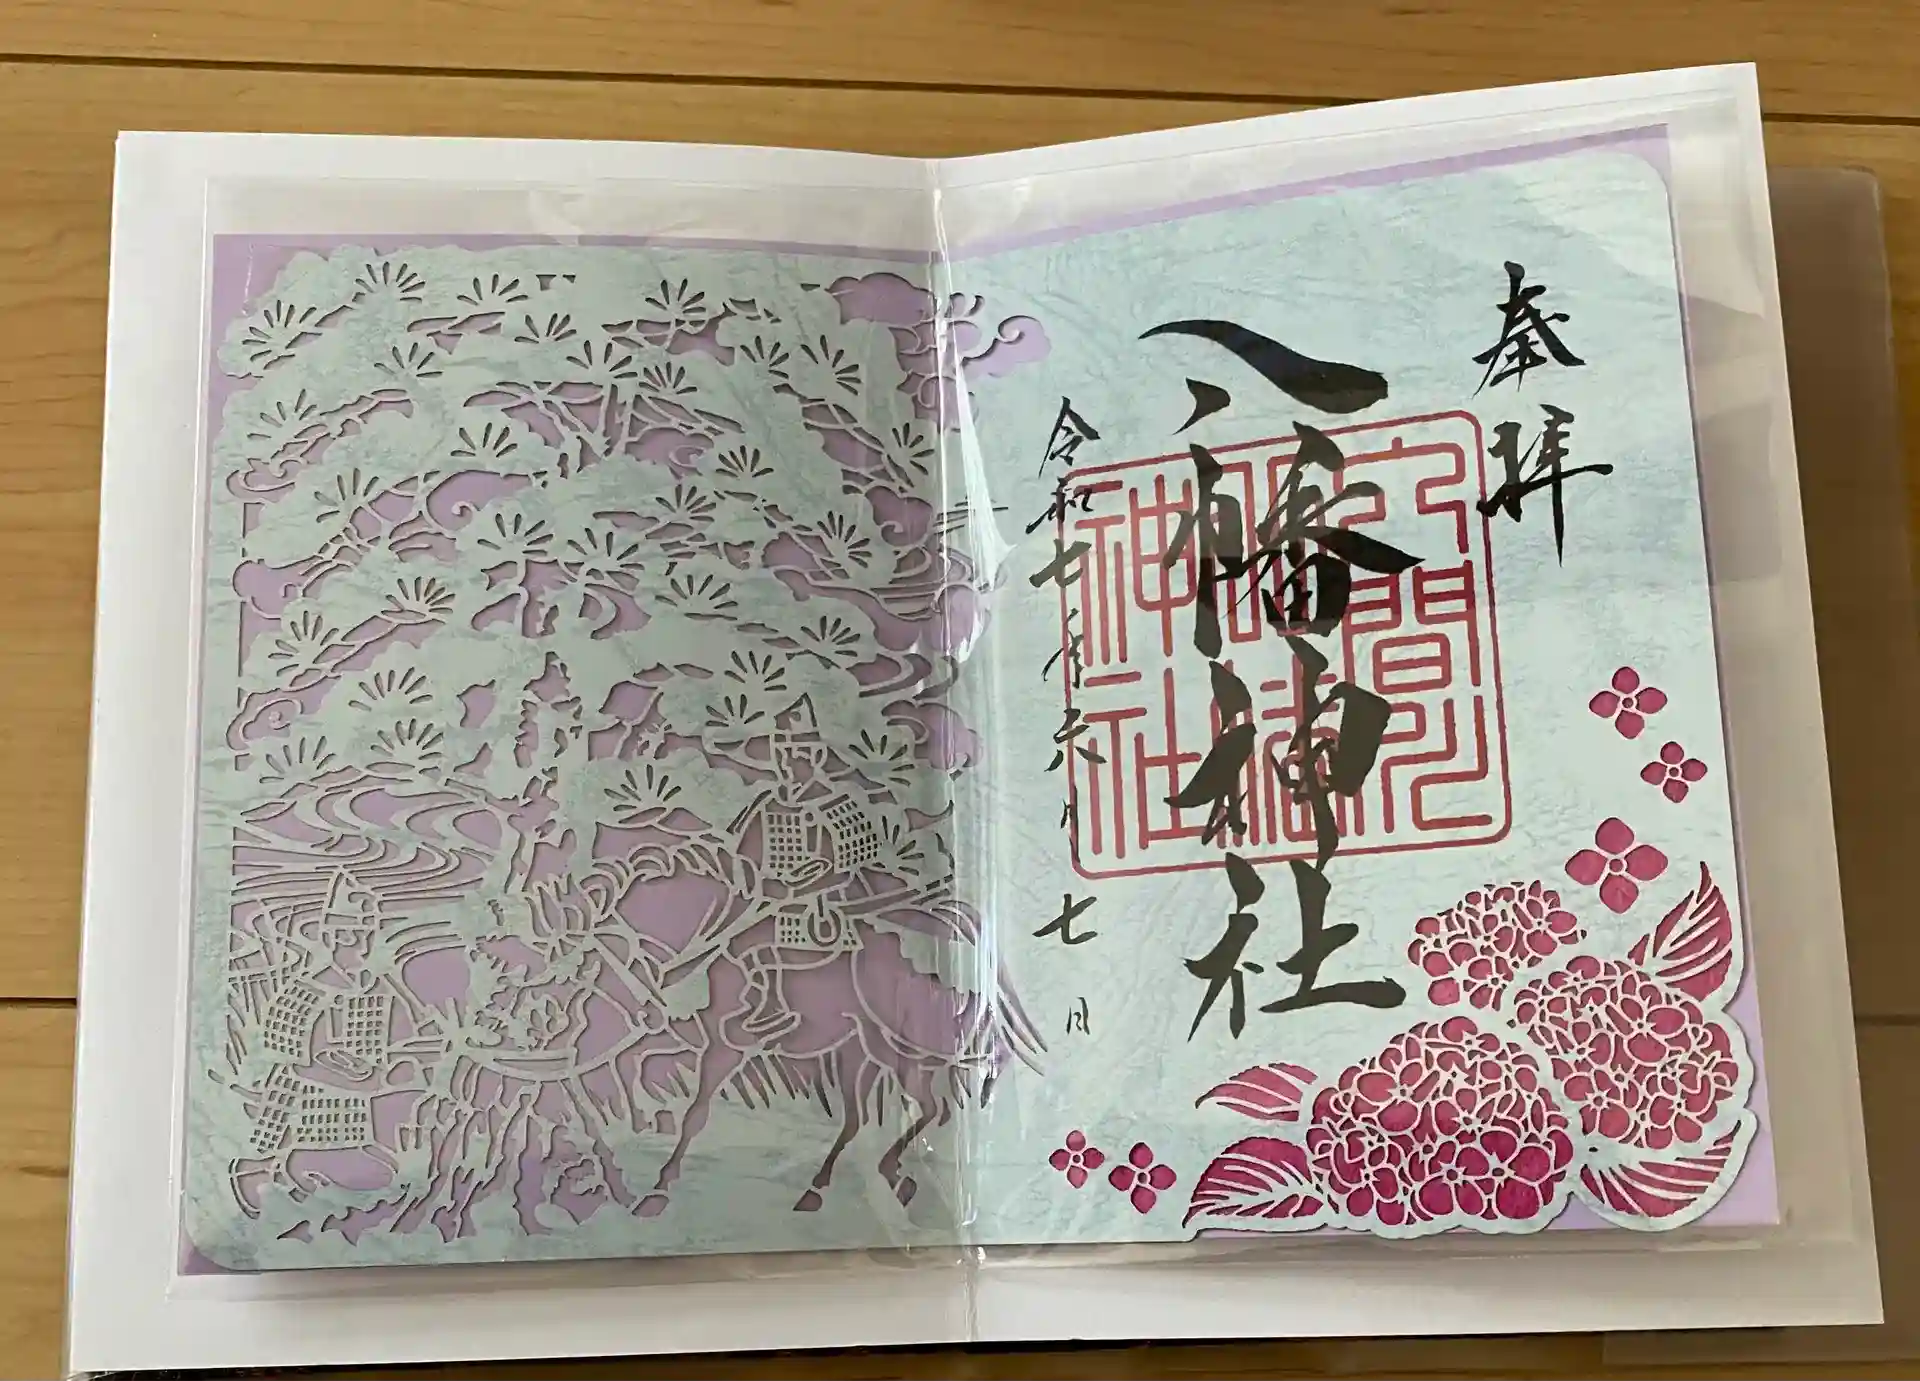 奉拝
八幡神社
神社
令和七年六月七日